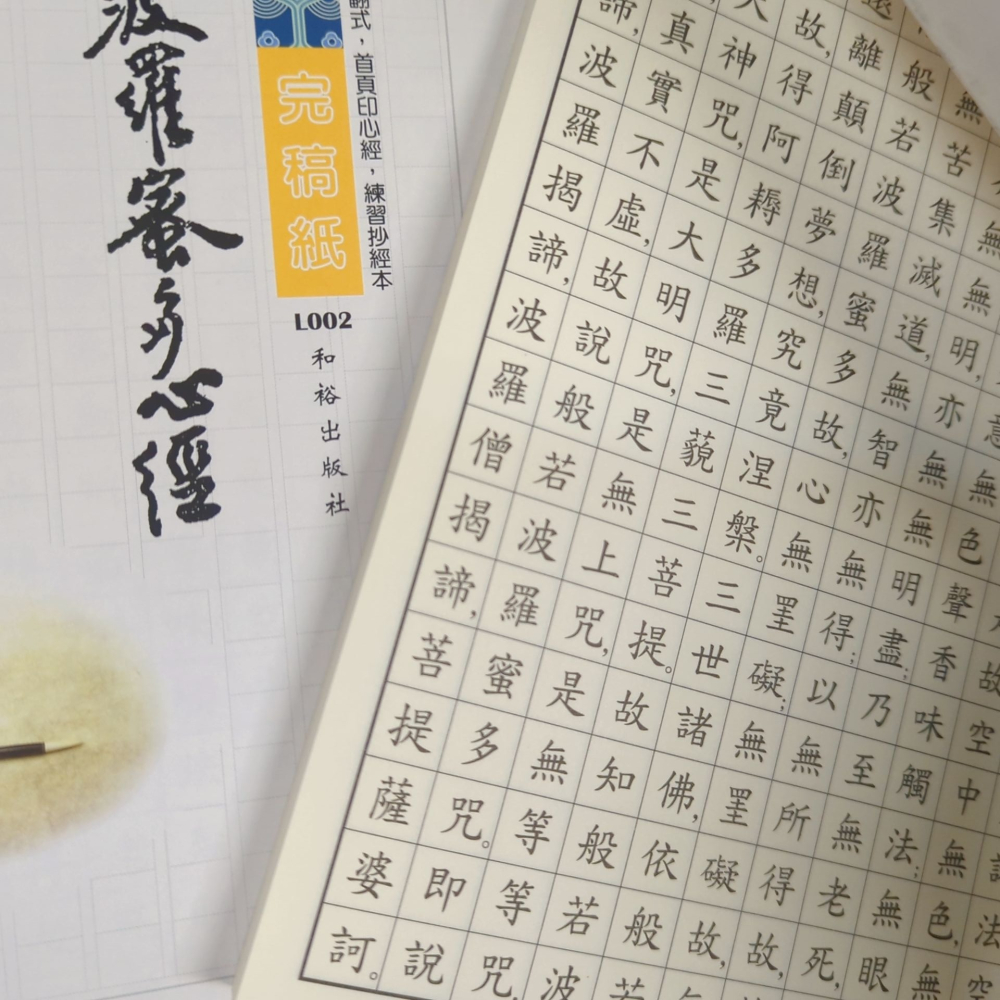 故空中無色,無
無色聲香味觸法;無眼
無無明,亦無無明盡;乃至無老死,
無苦集滅道,無智亦無得;以無所得故,
般若波羅蜜多故,心無罣礙;無罣礙故,
離顛倒夢想,究竟涅槃。三世諸佛,依般若
故,得阿耨多羅三藐三菩提。故知般若波
神咒,是大明咒,是無上咒,是無等等咒,
真實不虛,故說般若波羅蜜多咒。即說
諦,波羅揭諦,波羅僧揭諦,菩提薩婆訶。
翻式，首頁印心經，練習抄經本
完稿紙
L002
和裕出版社
波羅蜜多心經